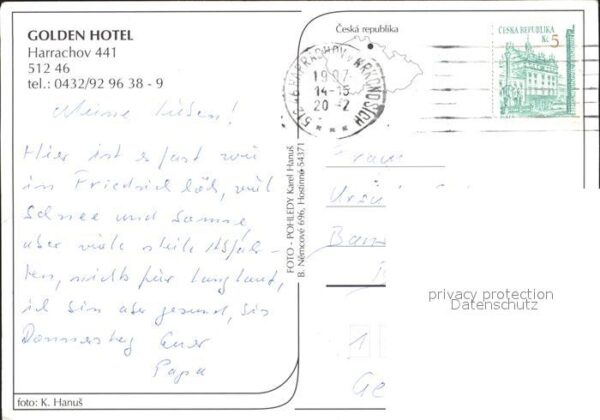 GOLDEN HOTEL
Harrachov 441
512 46
tel.: 0432/92 96 38 - 9
Meine Lieben!
Hier ist es fast wie
in Friedrich
Schnee und Sonne,
aber viele steile Abfahr-
ten, nichts für Langland,
ich bin aber gesund, bis
Donnerstag Euer
Papa
foto: K. Hanuš
FOTO - POHLEDY Karel Hanuš
B. Němcové 696, Hostinné 54371
Česká republika
512 46 HARRACHOV V KRKONOŠÍCH
14-15
20 -2
ČESKÁ REPUBLIKA
Kč 5
privacy protection
Datenschutz